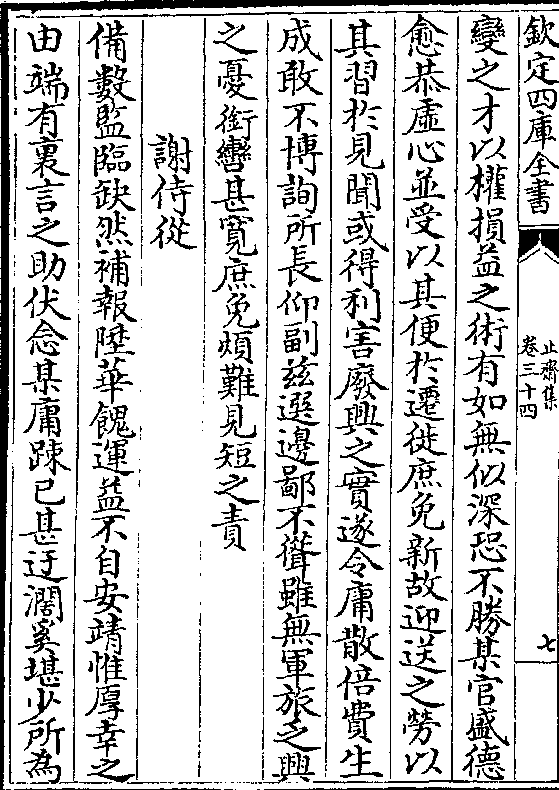 欽定四庫全書
止齋集
卷三十四
七
變之才以權損益之術有如無似深恐不勝某官盛德
愈恭虛心並受以其便於遷徙庶免新故迎送之勞以
其習於見聞或得利害廢興之實遂令庸散倍費生
成敢不博詢所長仰副兹選邊鄙不聳雖無軍旅之興
之憂銜轡甚寬庶免煩難見短之責
謝侍從
備數監臨缺然補報陞華餽運益不自安靖惟厚幸之
由端有裏言之助伏念某庸踈已甚迂濶奚堪少所為